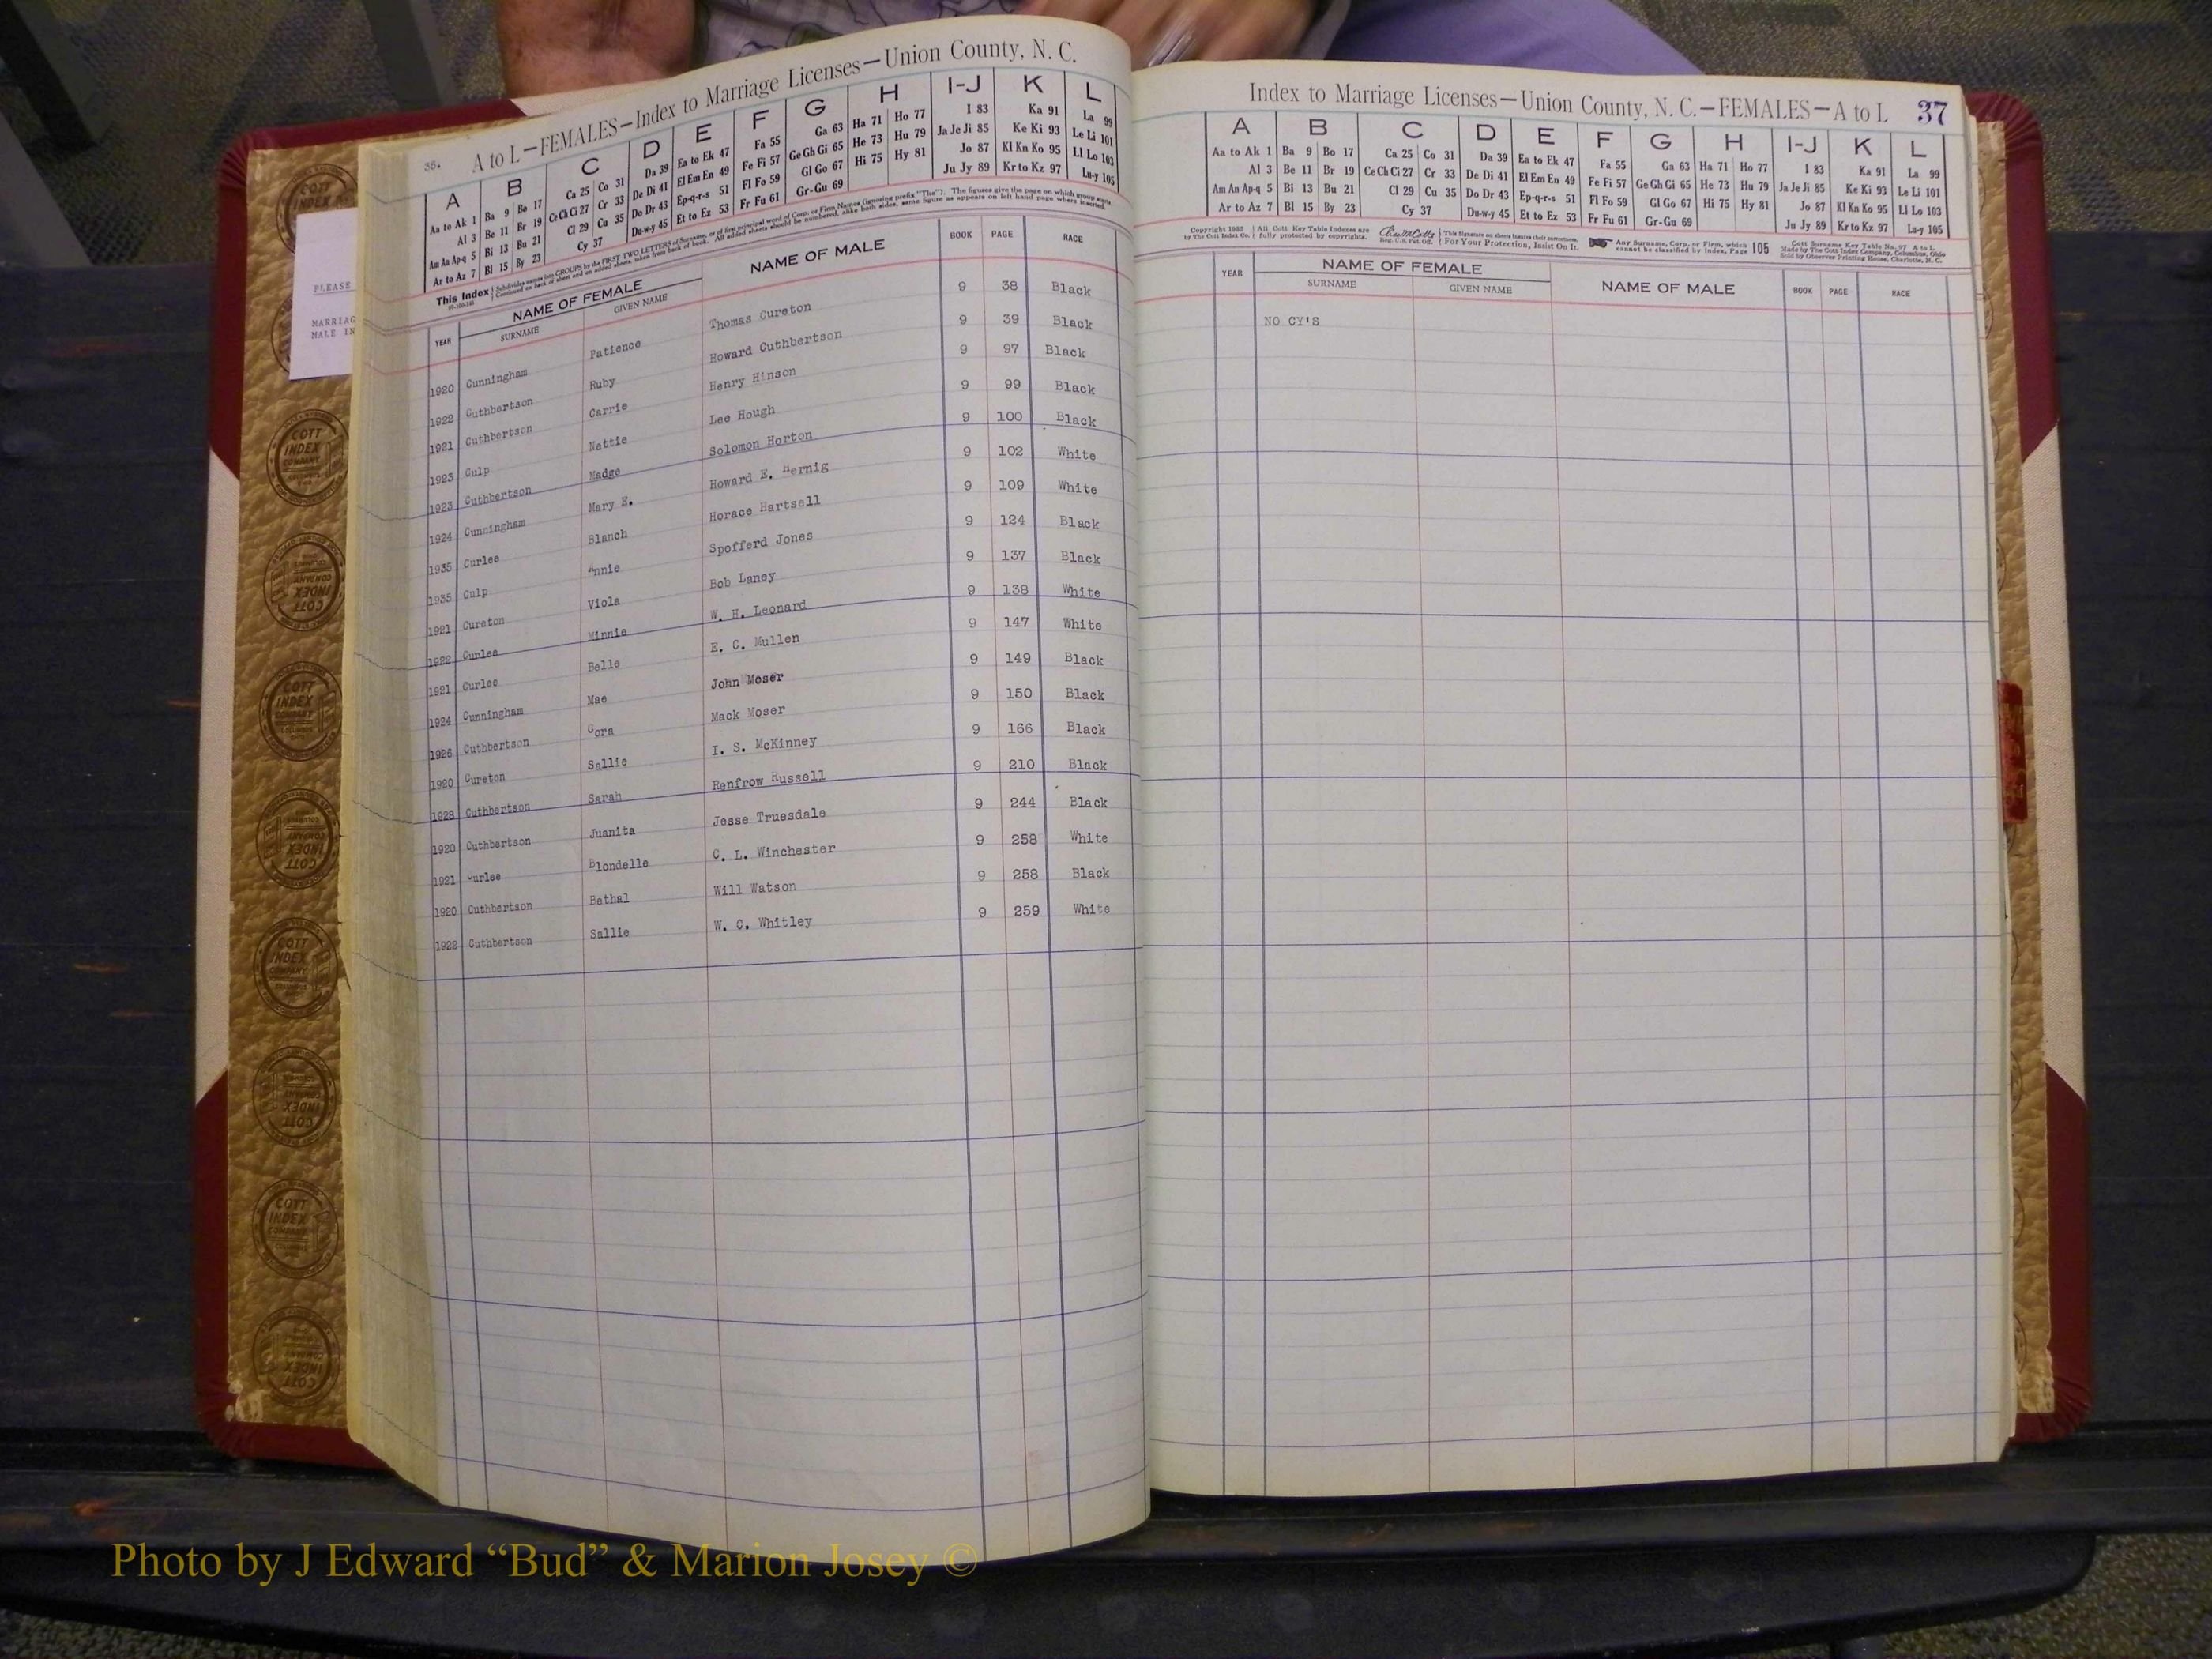 A to L—FEMALES—Index to Marriage Licenses—Union County, N. C.
A B C D E F G H I-J K L
Aa to Ak 1 Ba 9 Bo 17 Ca 25 Co 31 Da 39 Ea to Ek 47 Fa 55 Ga 63 Ha 71 Ho 77 I 83 Ka 91 La 99
Al 3 Be 11 Br 19 Ce Ch Ci 27 Cr 33 De Di 41 El Em En 49 Fe Fi 57 Ge Gh Gi 65 He 73 Hu 79 Ja Je Ji 85 Ke Ki 93 Le Li 101
Am An Ap-q 5 Bi 13 Bu 21 Cl 29 Cu 35 Do Dr 43 Ep-q-r-s 51 Fl Fo 59 Gl Go 67 Hi 75 Hy 81 Jo 87 Kl Kn Ko 95 Ll Lo 103
Ar to Az 7 Bl 15 By 23 Cy 37 Du-w-y 45 Et to Ez 53 Fr Fu 61 Gr-Gu 69 Ju Jy 89 Kr to Kz 97 Lu-y 105
This Index
YEAR NAME OF FEMALE NAME OF MALE BOOK PAGE RACE
SURNAME GIVEN NAME
1920 Cunningham Patience Thomas Cureton 9 38 Black
1922 Cuthbertson Ruby Howard Cuthbertson 9 39 Black
1921 Cuthbertson Carrie Henry Hinson 9 97 Black
1923 Culp Nettie Lee Hough 9 99 Black
1923 Cuthbertson Madge Solomon Horton 9 100 Black
1924 Cunningham Mary E. Howard E. Hernig 9 102 White
1935 Curlee Blanch Horace Hartsell 9 109 White
1935 Culp Annie Spofferd Jones 9 124 Black
1921 Cureton Viola Bob Laney 9 137 Black
1922 Curlee Minnie W. H. Leonard 9 138 White
1921 Curlee Belle E. C. Mullen 9 147 White
1924 Cunningham Mae John Moser 9 149 Black
1926 Cuthbertson Cora Mack Moser 9 150 Black
1920 Cureton Sallie I. S. McKinney 9 166 Black
1928 Cuthbertson Sarah Renfrow Russell 9 210 Black
1920 Cuthbertson Juanita Jesse Truesdale 9 244 Black
1921 Curlee Blondelle C. L. Winchester 9 258 White
1920 Cuthbertson Bethal Will Watson 9 258 Black
1922 Cuthbertson Sallie W. C. Whitley 9 259 White
Index to Marriage Licenses—Union County, N. C.—FEMALES—A to L 37
A B C D E F G H I-J K L
Aa to Ak 1 Ba 9 Bo 17 Ca 25 Co 31 Da 39 Ea to Ek 47 Fa 55 Ga 63 Ha 71 Ho 77 I 83 Ka 91 La 99
Al 3 Be 11 Br 19 Ce Ch Ci 27 Cr 33 De Di 41 El Em En 49 Fe Fi 57 Ge Gh Gi 65 He 73 Hu 79 Ja Je Ji 85 Ke Ki 93 Le Li 101
Am An Ap-q 5 Bi 13 Bu 21 Cl 29 Cu 35 Do Dr 43 Ep-q-r-s 51 Fl Fo 59 Gl Go 67 Hi 75 Hy 81 Jo 87 Kl Kn Ko 95 Ll Lo 103
Ar to Az 7 Bl 15 By 23 Cy 37 Du-w-y 45 Et to Ez 53 Fr Fu 61 Gr-Gu 69 Ju Jy 89 Kr to Kz 97 Lu-y 105
For Your Protection, Insist On It.
Any Surname, Corp. or Firm, which cannot be classified by Index, Page 105
YEAR NAME OF FEMALE NAME OF MALE BOOK PAGE RACE
SURNAME GIVEN NAME
NO CY'S
PLEASE
MARRIAG
MALE IN
COTT INDEX COMPANY
Photo by J Edward “Bud” & Marion Josey ©